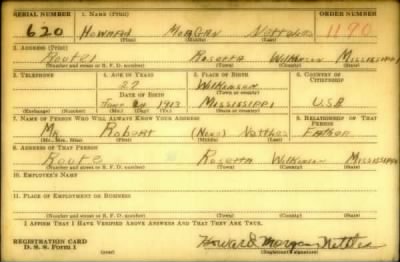 SERIAL NUMBER 1. NAME (Print) ORDER NUMBER
620 HOWARD MORGAN NETTLES 1190
(First) (Middle) (Last)
2. ADDRESS (Print)
Route 1 Rosetta Wilkinson Mississippi
(Number and street or R. F. D. number) (Town) (County) (State)
3. TELEPHONE 4. AGE IN YEARS 5. PLACE OF BIRTH 6. COUNTRY OF CITIZENSHIP
27 Wilkinson
DATE OF BIRTH (Town or county)
1913 Mississippi USA
(Exchange) (Number) (Mo.) (Day) (Yr.) (State or country)
7. NAME OF PERSON WHO WILL ALWAYS KNOW YOUR ADDRESS 8. RELATIONSHIP OF THAT PERSON
Mr Robert (None) Nettles Father
(Mr., Mrs., Miss) (First) (Middle) (Last)
9. ADDRESS OF THAT PERSON
Route Rosetta Wilkinson Mississippi
(Number and street or R. F. D. number) (Town) (County) (State)
10. EMPLOYER'S NAME
11. PLACE OF EMPLOYMENT OR BUSINESS
(Number and street or R. F. D. number) (Town) (County) (State)
I AFFIRM THAT I HAVE VERIFIED ABOVE ANSWERS AND THAT THEY ARE TRUE.
REGISTRATION CARD
D. S. S. Form 1 Howard Morgan Nettles
(Registrant's signature)